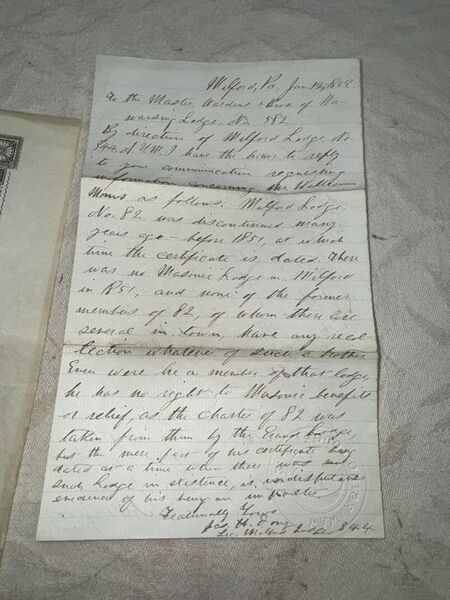 Milford, Pa, Jan.
To the Master, Wardens & Bros of Wa-
warsing Lodge, No 582
By direction of Milford Lodge No
344, A.Y.M. I have the honor to reply
to your communication requesting
information concerning Mr. William
Morris as follows: Milford Lodge
No. 82 was discontinued many
years ago — before 1851, at which
time the certificate is dated. There
was no Masonic Lodge in Milford
in 1851, and none of the former
members of 82, of whom there are
several in town, have any recol-
lection whatever of such a brother
Even were he a member of that lodge,
he has no right to Masonic benefits
or relief, as the charter of 82 was
taken from them by the Grand Lodge,
but the mere fact of his certificate being
dated at a time when there was no
such Lodge in existence, is indisputable
evidence of his being an imposter
Fraternally Yours
H.
Sec. Milford Lodge 344